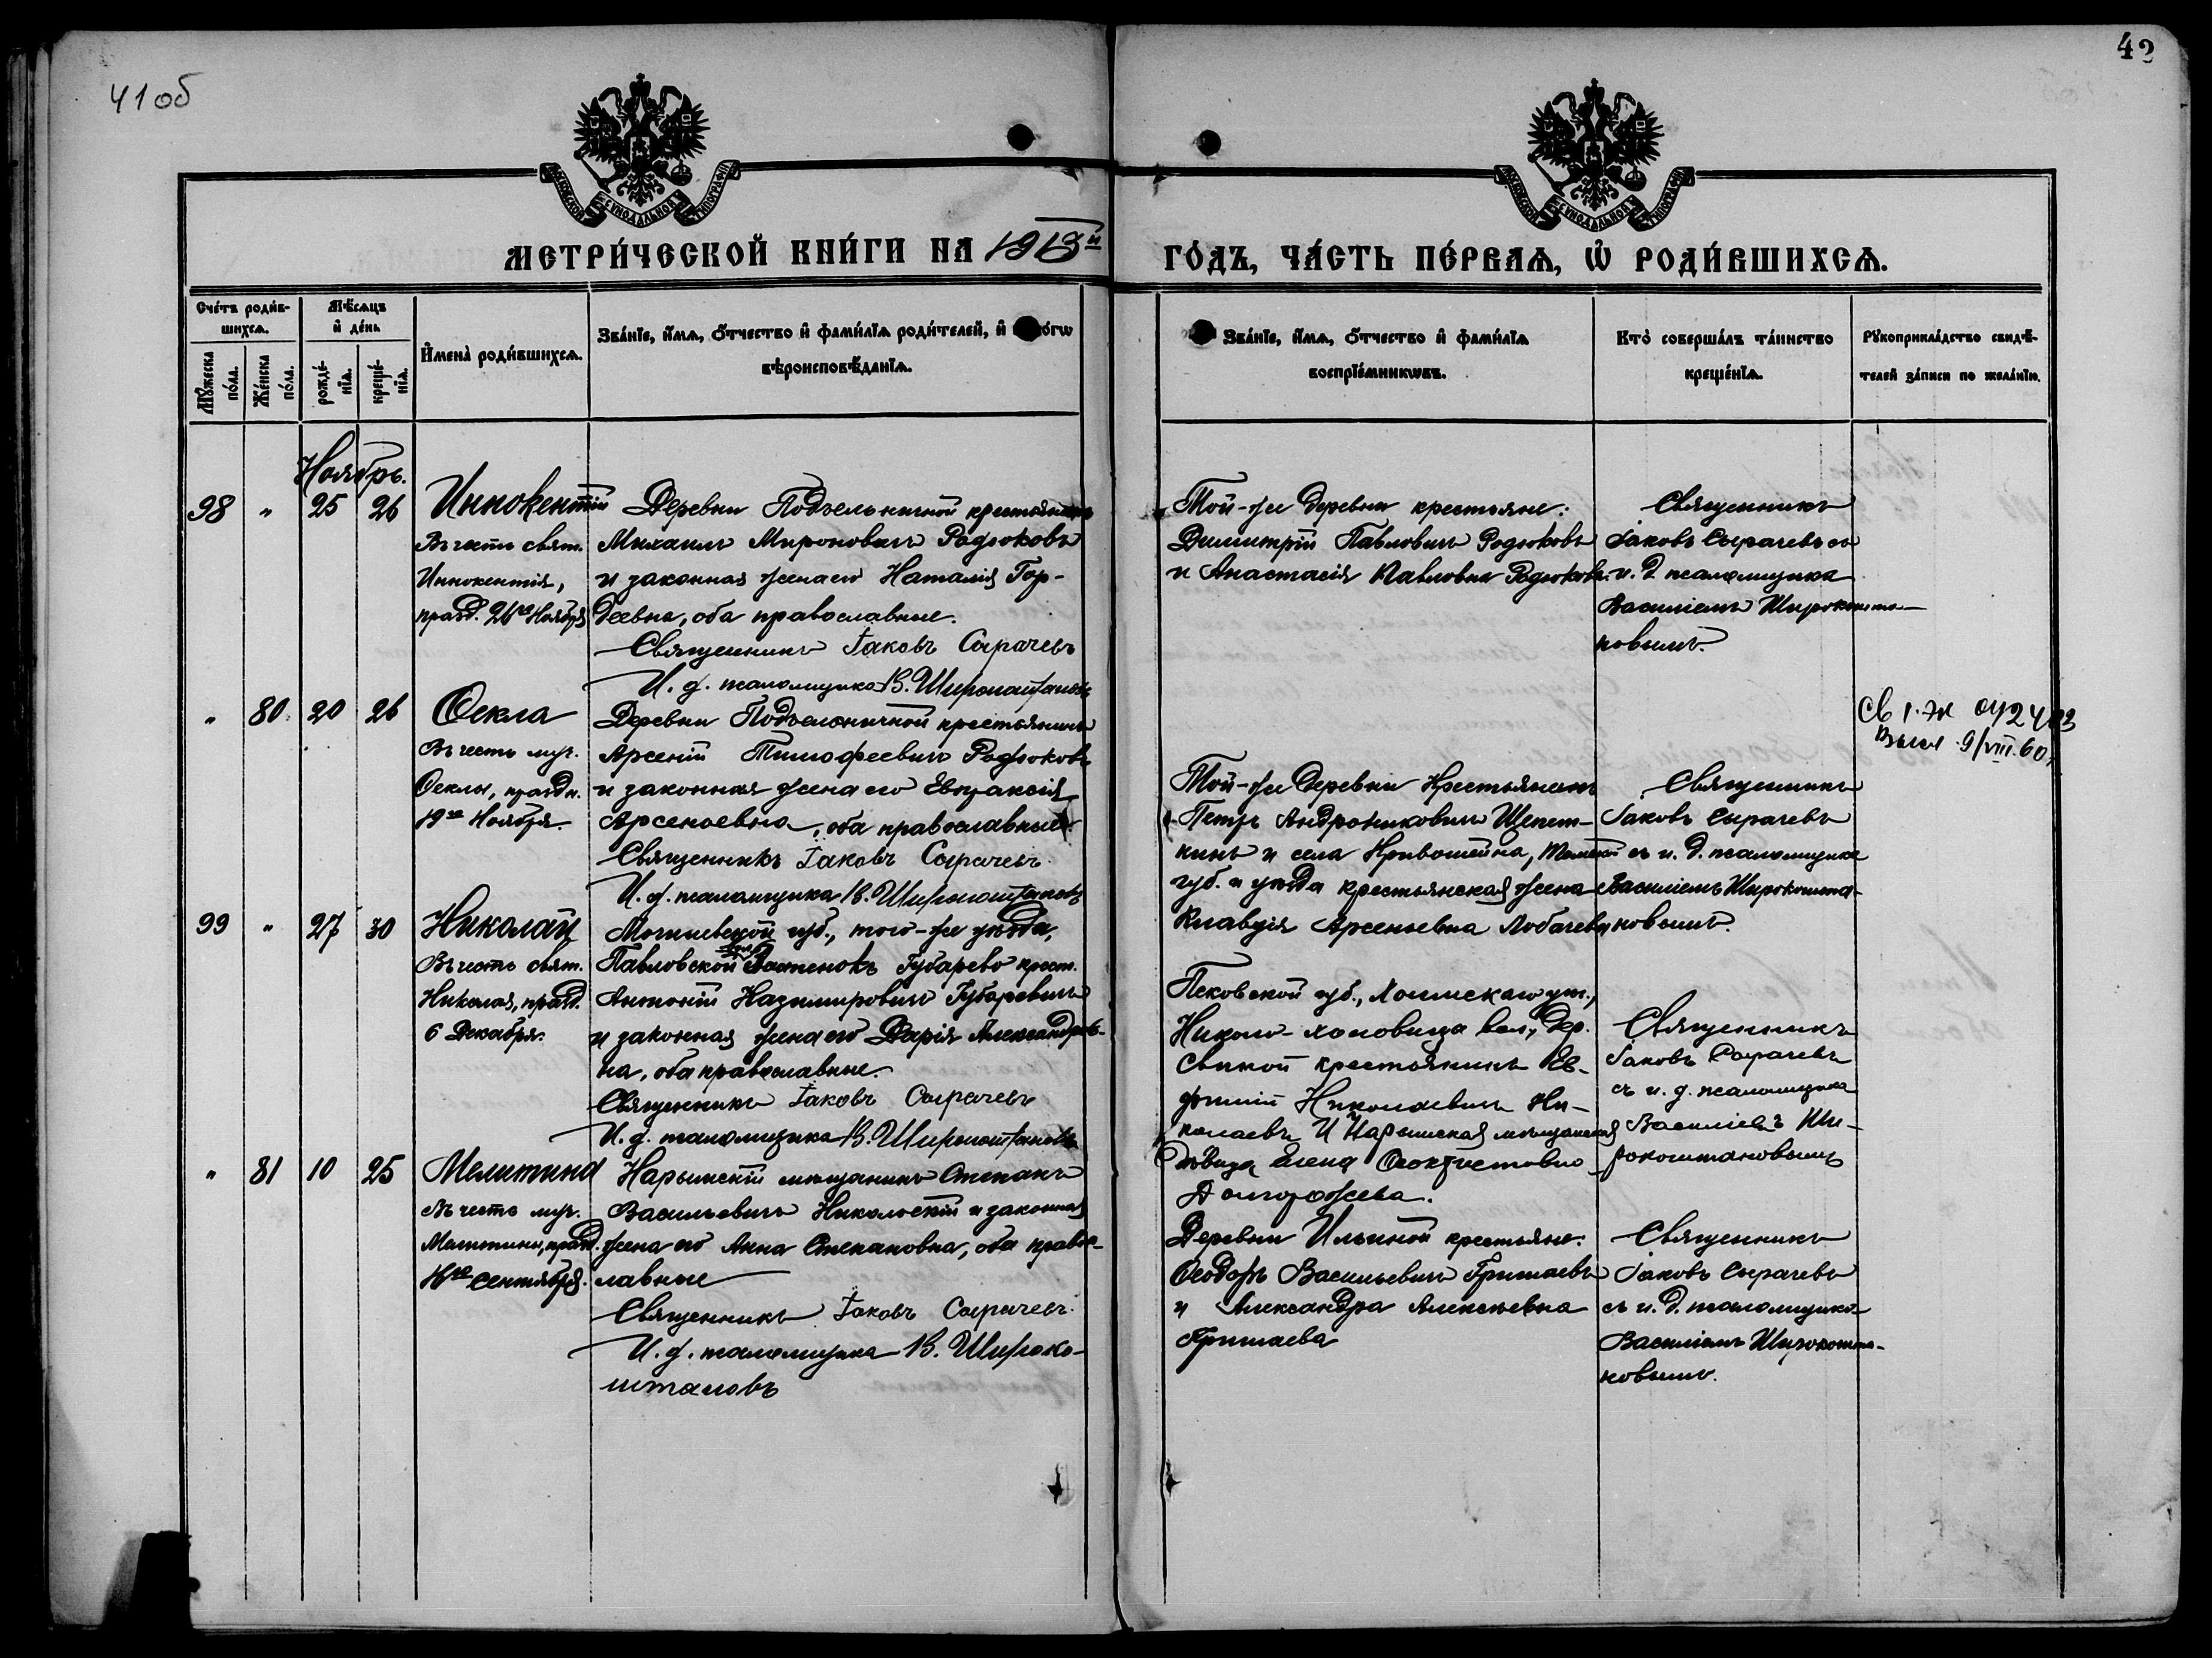 41 об
42
МЕТРИ́ЧЕСКОЙ КНИ́ГИ НА 1913й
ГО́ДЪ, ЧА́СТЬ ПЕ́РВАѦ, Ѡ҆ РОДИ́ВШИХСѦ.
Сче́тъ роди́в-
шихсѧ.
Мѣ́сѧцъ
и҆ де́нь
Мꙋ́жеска по́ла.
Же́нска по́ла.
рожде́-
нїѧ.
креще́-
нїѧ.
И҆мена̀ роди́вшихсѧ.
Зва́нїе, и҆́мѧ, ѻ҆́тчество и҆ фами́лїѧ роди́телей, и҆
вѣроисповѣ́данїѧ.
Зва́нїе, и҆́мѧ, ѻ҆́тчество и҆ фами́лїѧ
воспрїе́мникѡвъ.
Кто̀ соверша́лъ та́инство
креще́нїѧ.
Рꙋкоприкла́дство свидѣ́-
телей за́писи по жела́нїю.
Ноябрь.
98 " 25 26
Иннокентій
Въ честь свят.
Иннокентія,
празд. 26го Ноября
Деревни Подъельничной крестьянинъ
Михаилъ Мироновичъ Родюковъ
и законная жена его Наталія Гор-
деевна, оба православные.
Священникъ Іаковъ Сырачевъ
И. д. псаломщика В. Широкоштановъ
Той-же деревни крестьяне:
Димитрій Павловичъ Родюковъ
и Анастасія Павловна Родюкова.
Священникъ
Іаковъ Сырачевъ съ
и. д. псаломщика
Василіемъ Широкошта-
новымъ.
" 80 20 26
Ѳекла
Въ честь муч.
Ѳеклы, праздн.
19го Ноября.
Деревни Подъельничной крестьянинъ
Арсеній Тимофеевичъ Родюковъ
и законная жена его Евпраксія
Арсеньевна, оба православные.
Священникъ Іаковъ Сырачевъ
И. д. псаломщика В. Широкоштановъ
Той-же деревни крестьянинъ
Петръ Андрониковичъ Щепет-
кинъ и села Кривошеина, Томской
губ. и уѣзда крестьянская жена
Клавдія Арсеньевна Лобачева
Священникъ
Іаковъ Сырачевъ
съ и. д. псаломщика
Василіемъ Широкошта-
новымъ.
Св 1-ж
Высл 9/VIII.60.
99 " 27 30
Николай
Въ честь свят.
Николая, празд.
6 Декабря.
Могилевской губ., того-же уѣзда,
Павловской Застенокъ Губарево крест.
Антоній Казимировичъ Губаревичъ
и законная жена его Дарія Александров-
на, оба православные.
Священникъ Іаковъ Сырачевъ
И. д. псаломщика В. Широкоштановъ
Псковской губ., Холмскаго уѣз.,
вол., дер.
крестьянинъ Ев-
фимій Николаевичъ Ни-
колаевъ и Нарымская мѣщанская
дѣвица Елена Ѳеоктистовна
Долгоржева.
Священникъ
Іаковъ Сырачевъ
съ и. д. псаломщика
Василіемъ Ши-
рокоштановымъ
" 81 10 25
Мелитина
Въ честь муч.
Мелитины, празд.
16го сентября.
Нарымскій мѣщанинъ Степанъ
Васильевичъ Никольскій и законная
жена его Анна Степановна, оба право-
славные
Священникъ Іаковъ Сырачевъ.
И. д. псаломщика В. Широко-
штановъ
Деревни Ильиной крестьяне:
Ѳеодоръ Васильевичъ Гришаевъ
и Александра Алексѣевна
Гришаева
Священникъ
Іаковъ Сырачевъ
съ и. д. псаломщика
Василіемъ Широкошта-
новымъ.